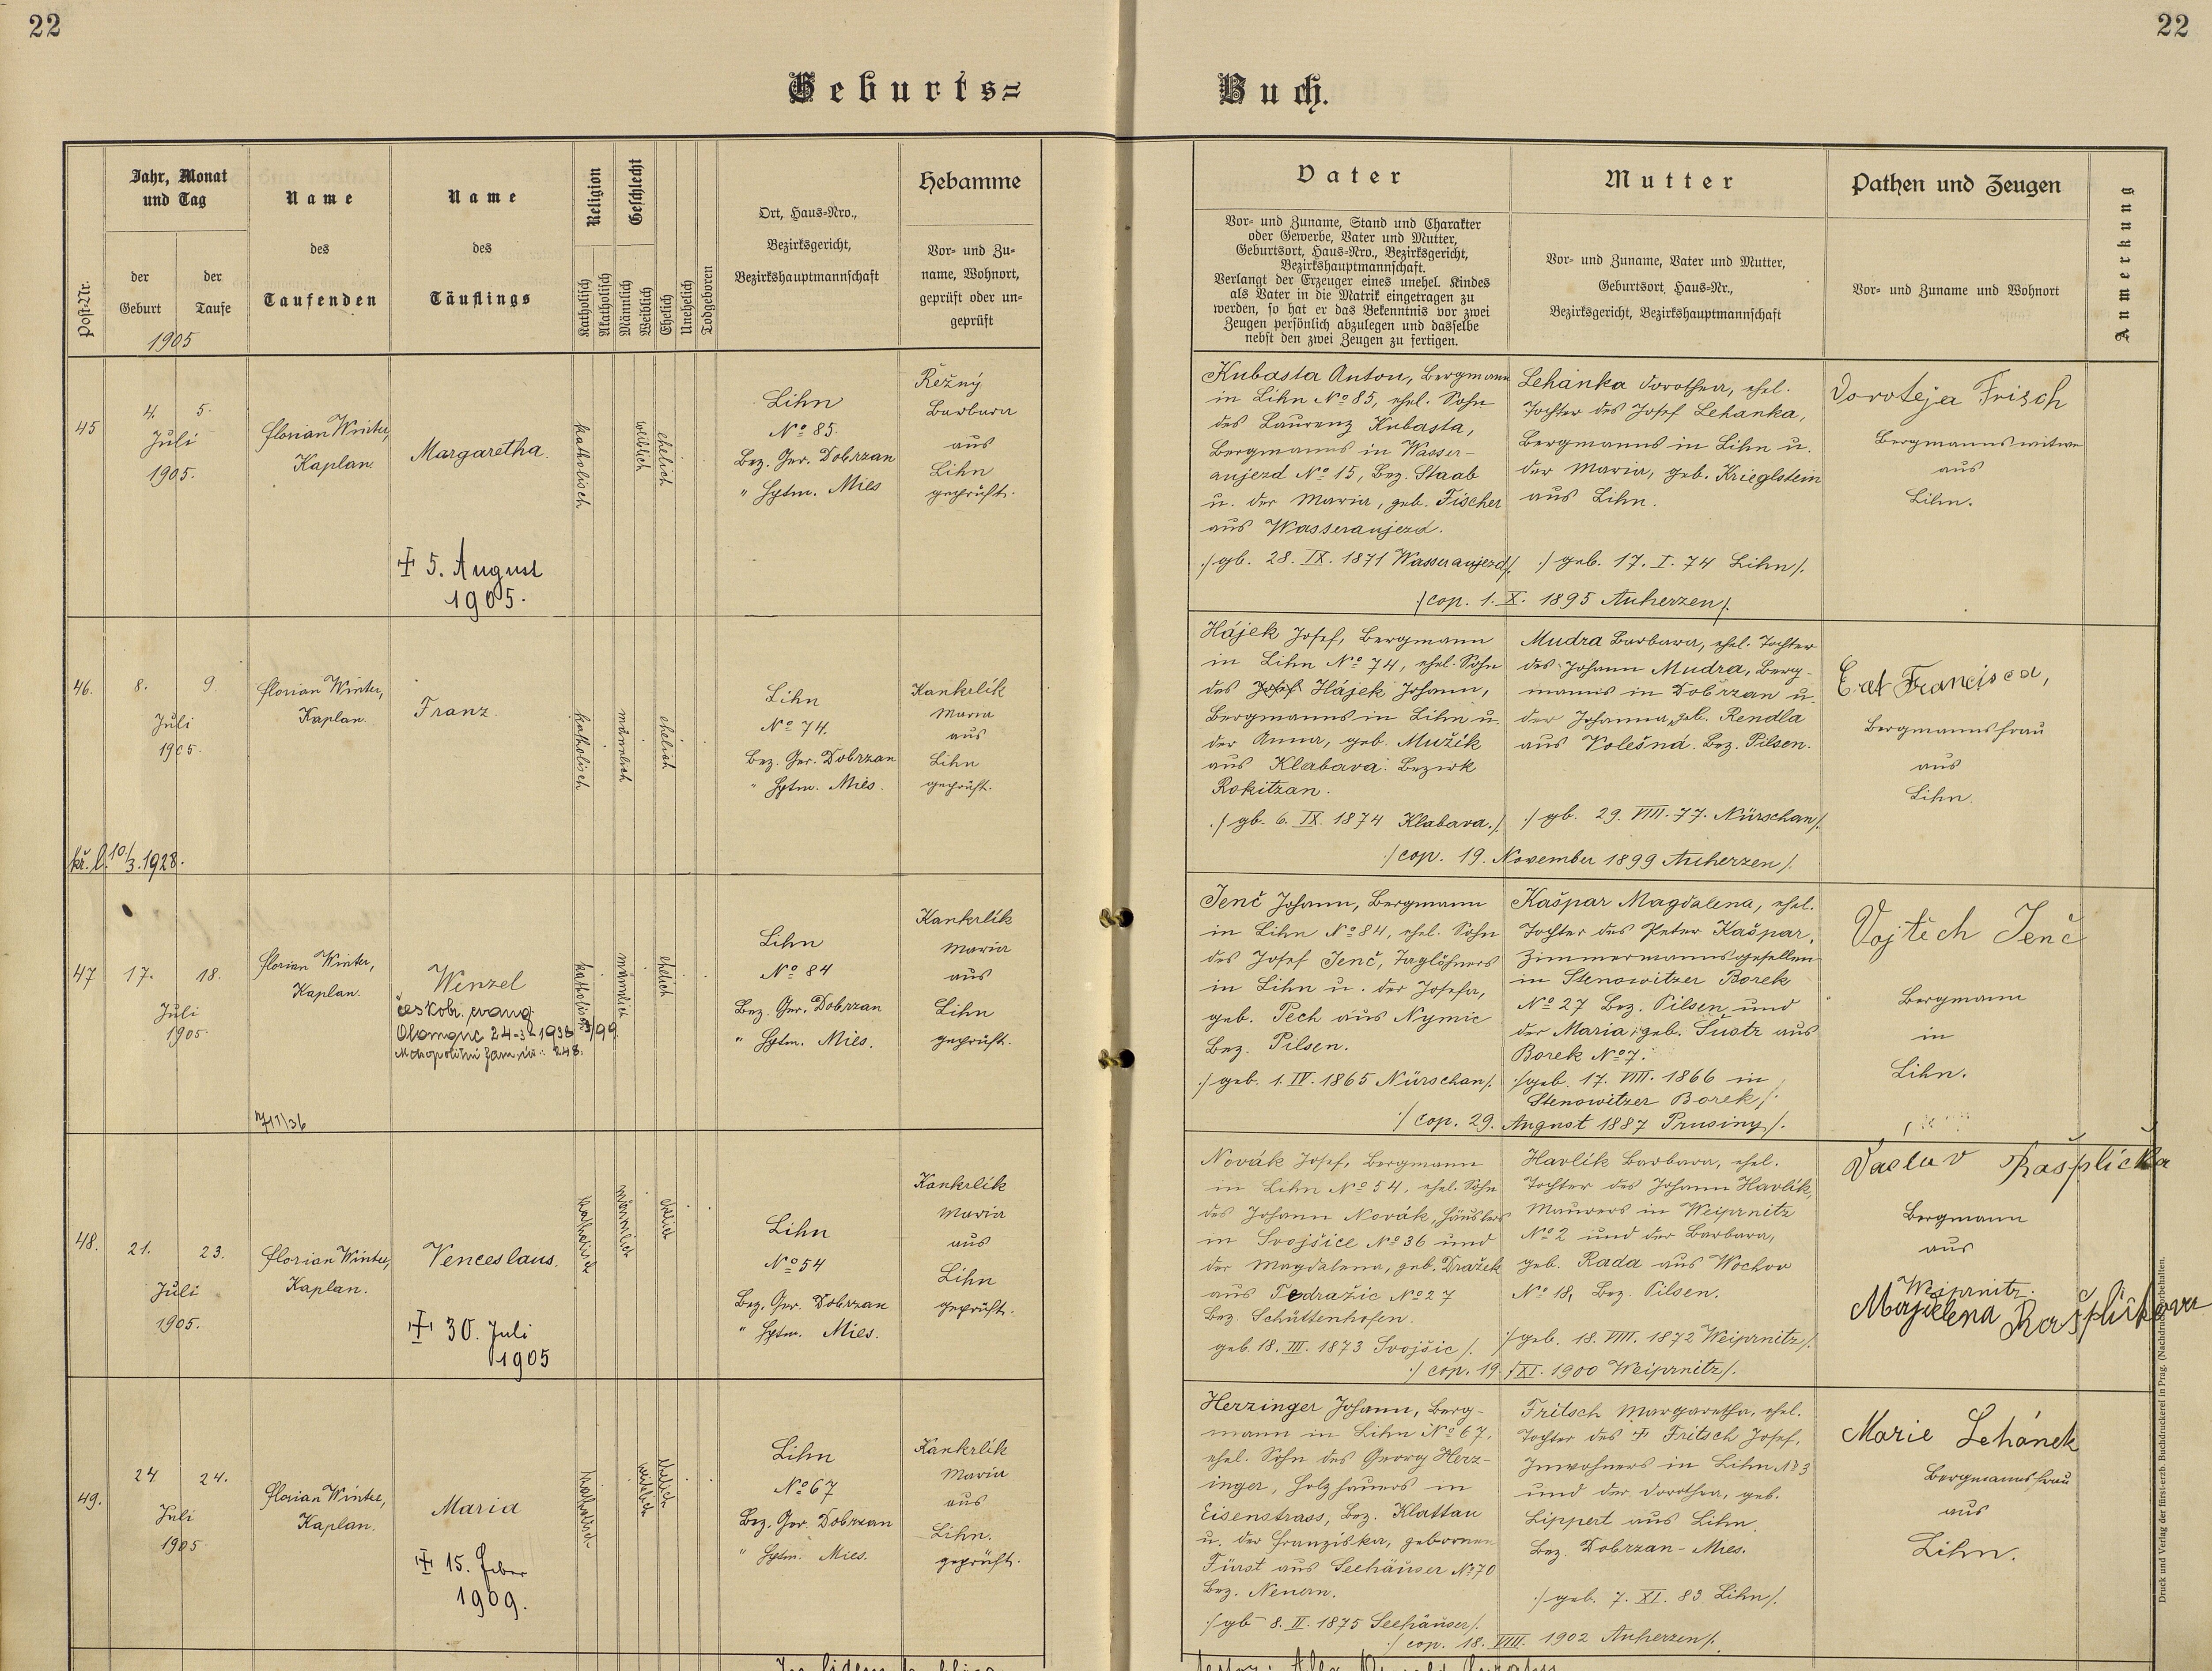 22
22
Geburts=
Buch.
Post-Nr.
Jahr, Monat
und Tag
der
Geburt
der
Taufe
1905
Name
des
Taufenden
Name
des
Täuflings
Religion
Katholisch
Akatholisch
Geschlecht
Männlich
Weiblich
Ehelich
Unehelich
Todgeboren
Ort, Haus-Nro.,
Bezirksgericht,
Bezirkshauptmannschaft
Hebamme
Vor- und Zu-
name, Wohnort,
geprüft oder un-
geprüft
Vater
Vor- und Zuname, Stand und Charakter
oder Gewerbe, Vater und Mutter,
Geburtsort, Haus-Nro., Bezirksgericht,
Bezirkshauptmannschaft.
Verlangt der Erzeuger eines unehel. Kindes
als Vater in die Matrik eingetragen zu
werden, so hat er das Bekenntnis vor zwei
Zeugen persönlich abzulegen und dasselbe
nebst den zwei Zeugen zu fertigen.
Mutter
Vor- und Zuname, Vater und Mutter,
Geburtsort, Haus-Nr.,
Bezirksgericht, Bezirkshauptmannschaft
Pathen und Zeugen
Vor- und Zuname und Wohnort
Anmerkung
45
4. 5.
Juli
1905.
Florian Winter,
Kaplan.
Margaretha.
✝ 5. August
1905.
katholisch
weiblich
ehelich
Lihn
No 85.
Bez. Ger. Dobrzan
" Hptm. Mies
Řežný
Barbara
aus
Lihn
geprüft.
Kubasta Anton, Bergmann
in Lihn No 85, ehel. Sohn
des Laurenz Kubasta,
Bergmanns in Wasser-
aujezd No 15, Bez. Staab
u. der Maria, geb. Fischer
aus Wasseraujezd.
/gb. 28. IX. 1871 Wasseraujezd/
Lehanka Dorothea, ehel.
Tochter des Josef Lehanka,
Bergmanns in Lihn u.
der Maria, geb. Krieglstein
aus Lihn.
/geb. 17. I. 74 Lihn/.
/cop. 1. X. 1895 Auherzen/.
Doroteja Frisch
Bergmannswitwe
aus
Lihn.
46.
8. 9.
Juli
1905.
kř. l. 10/3. 1928.
Florian Winter,
Kaplan.
Franz.
katholisch
männlich
ehelich
Lihn
No 74.
Bez. Ger. Dobrzan
" Hptm. Mies.
Kankrlík
Maria
aus
Lihn
geprüft.
Hájek Josef, Bergmann
in Lihn No 74, ehel. Sohn
des Josef Hájek Johann,
Bergmanns in Lihn u.
der Anna, geb. Mužík
aus Klabava: Bezirk
Rokitzan.
/gb. 6. IX. 1874 Klabava./
Mudra Barbara, ehel. Tochter
des Johann Mudra, Berg-
manns in Dobrzan u.
der Johanna, geb. Rendla
aus Volešná. Bez. Pilsen.
/gb. 29. VIII. 77. Nürschan/.
/cop. 19. November 1899 Auherzen/.
Francisca,
Bergmannsfrau
aus
Lihn.
47
17. 18.
Juli
1905.
Florian Winter,
Kaplan.
Wenzel
českobr. evang.
Olomouc 24-3-1936
katholisch
männlich
ehelich
Lihn
No 84
Bez. Ger. Dobrzan
" Hptm. Mies.
Kankrlík
Maria
aus
Lihn
geprüft.
Jenč Johann, Bergmann
in Lihn No 84, ehel. Sohn
des Josef Jenč, Taglöhners
in Lihn u. der Josefa,
geb. Pech aus Nymic
Bez. Pilsen.
/geb. 1. IV. 1865 Nürschan/.
Kašpar Magdalena, ehel.
Tochter des Peter Kašpar,
Zimmermannsgesellen
in Stenowitzer Borek
No 27 Bez. Pilsen und
der Maria, geb. Šustr aus
Borek No 7.
/geb. 17. VIII. 1866 in
Stenowitzer Borek/.
/cop. 29. August 1887 Prusiny/.
Vojtěch Jenč
Bergmann
in
Lihn.
48.
21. 23.
Juli
1905.
Florian Winter,
Kaplan.
Venceslaus.
✝ 30. Juli
1905
katholisch
männlich
ehelich
Lihn
No 54
Bez. Ger. Dobrzan
" Hptm. Mies.
Kankrlík
Maria
aus
Lihn
geprüft.
Novák Josef, Bergmann
in Lihn No 54, ehel. Sohn
des Johann Novák, Häuslers
in Svojšice No 36 und
der Magdalena, geb. Dražek
aus Tedražic No 27
Bez. Schüttenhofen.
geb. 18. III. 1873 Svojšic/.
Havlík Barbara, ehel.
Tochter des Johann Havlík,
Maurers in Weiprnitz
No 2 und der Barbara,
geb. Rada aus Wochov
No 18, Bez. Pilsen.
/geb. 18. VIII. 1872 Weiprnitz/.
/cop. 19. XI. 1900 Weiprnitz/.
Vaclav Rašplička
Bergmann
aus
Weiprnitz.
Majdlena Rašpličkova
49.
24 24.
Juli
1905
Florian Winter,
Kaplan.
Maria
✝ 15. Feber
1909.
katholisch
weiblich
ehelich
Lihn
No 67
Bez. Ger. Dobrzan
" Hptm. Mies.
Kankrlík
Maria
aus
Lihn.
geprüft.
Herzinger Johann, Berg-
mann in Lihn No 67,
ehel. Sohn des Georg Herz-
inger, Holzhauers in
Eisenstrass, Bez. Klattau
u. der Franziska, gebornen
Fürst aus Seehäuser No 70
Bez. Neuern.
/gb 8. II. 1875 Seehäuser/.
Fritsch Margaretha, ehel.
Tochter des ✝ Fritsch Josef,
Inwohners in Lihn No 3
und der Dorothea, geb.
Lippert aus Lihn.
Bez. Dobrzan-Mies.
/geb. 7. XI. 83 Lihn/.
/cop. 18. VIII. 1902 Auherzen/.
Marie Lehánek
Bergmannsfrau
aus
Lihn.
Druck und Verlag der fürst-erzb. Buchdruckerei in Prag. (Nachdruck vorbehalten.